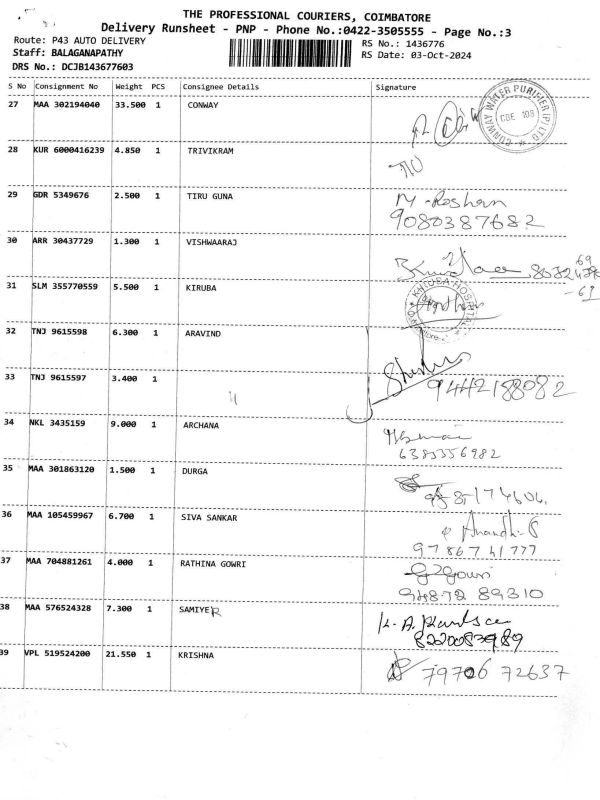 THE PROFESSIONAL COURIERS, COIMBATORE
Delivery Runsheet - PNP - Phone No.:0422-3505555 - Page No.:3
Route: P43 AUTO DELIVERY
RS No.: 1436776
Staff: BALAGANAPATHY
RS Date: 03-Oct-2024
DRS No.: DCJB143677603
S No Consignment No Weight PCS Consignee Details Signature
27 MAA 302194040 33.500 1 CONWAY
CBE 103
28 KUR 6000416239 4.850 1 TRIVIKRAM
29 GDR 5349676 2.500 1 TIRU GUNA M-Roshan
9080387682
30 ARR 30437729 1.300 1 VISHWAARAJ
31 SLM 355770559 5.500 1 KIRUBA
32 TNJ 9615598 6.300 1 ARAVIND
33 TNJ 9615597 3.400 1 "
9442188082
34 NKL 3435159 9.000 1 ARCHANA
6383556982
35 MAA 301863120 1.500 1 DURGA
36 MAA 105459967 6.700 1 SIVA SANKAR Anandhi.S
97867 41777
37 MAA 704881261 4.000 1 RATHINA GOWRI Gowri
94872 89310
38 MAA 576524328 7.300 1 SAMIYER
8220083989
39 VPL 519524200 21.550 1 KRISHNA 79706 72637